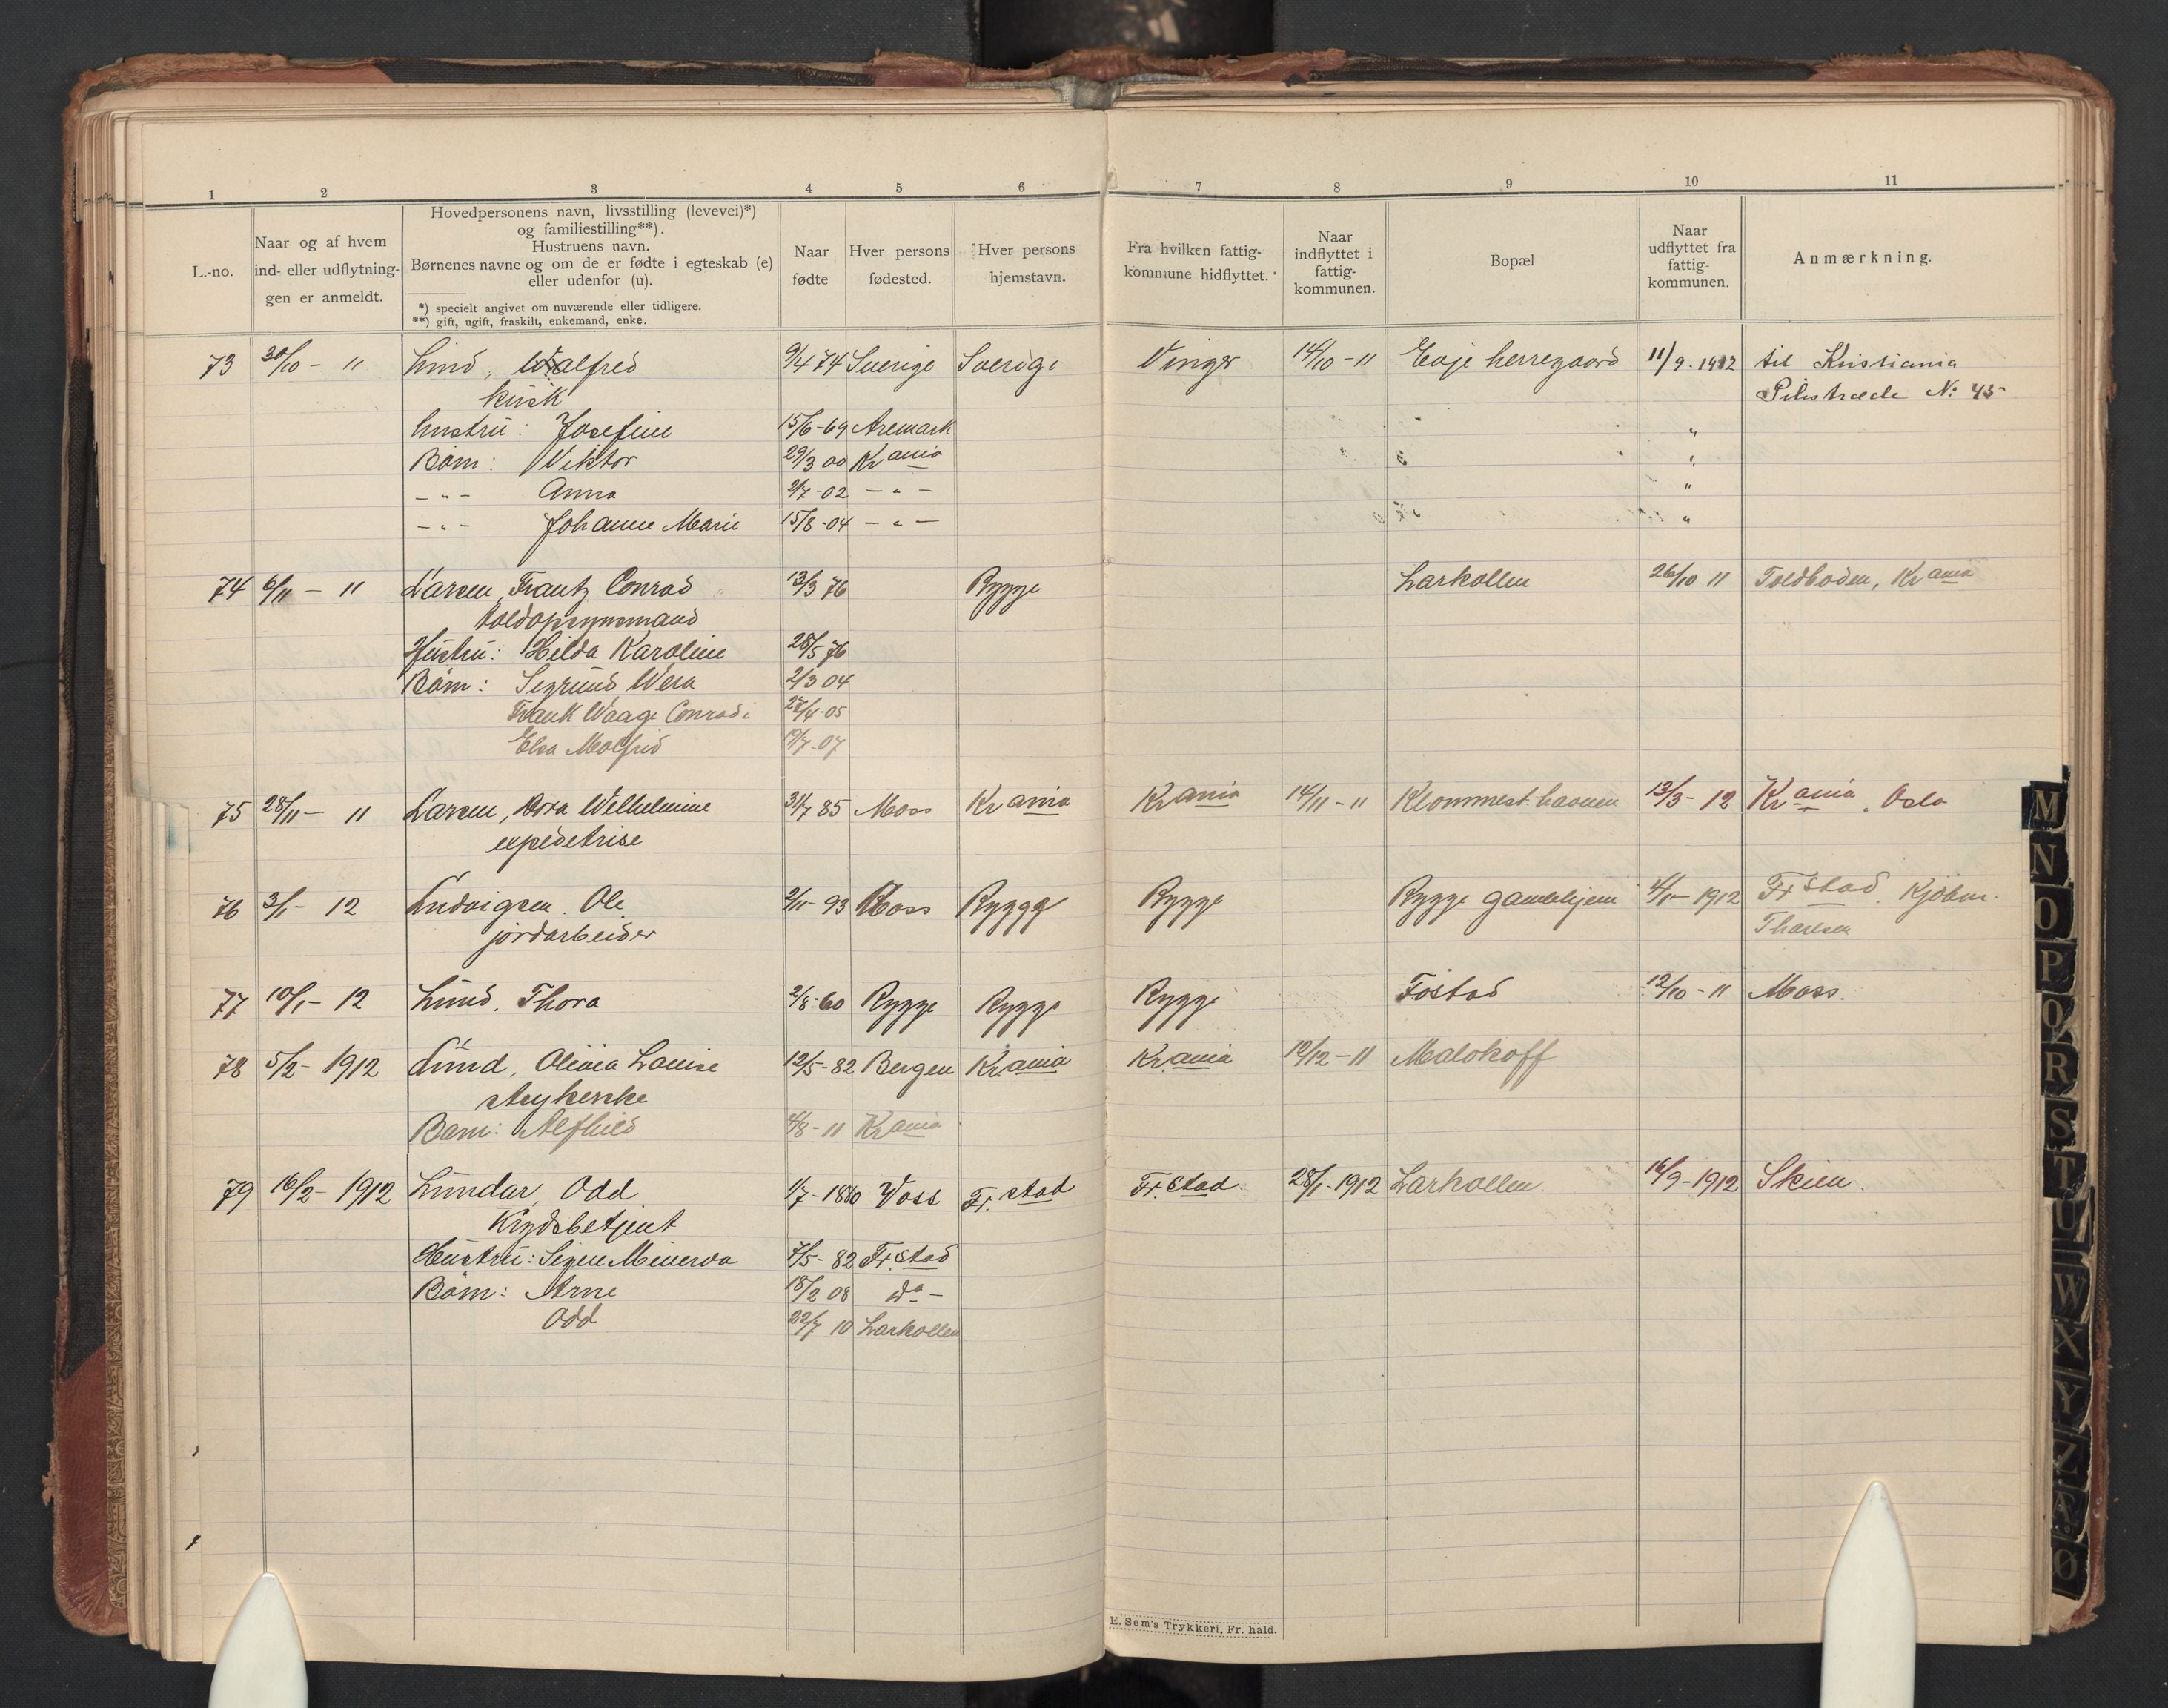 1 2 3 4 5 6 7 8 9 10 11
L.-no.
Naar og af hvem
ind- eller udflytnin-
gen er anmeldt.
Hovedpersonens navn, livsstilling (levevei)*)
og familiestilling**).
Hustruens navn.
Børnenes navne og om de er fødte i egteskab (e)
eller udenfor (u).
*) specielt angivet om nuværende eller tidligere.
**) gift, ugift, fraskilt, enkemand, enke.
Naar
fødte
Hver persons
fødested.
Hver persons
hjemstavn.
Fra hvilken fattig-
kommune hidflyttet.
Naar
indflyttet i
fattig-
kommunen.
Bopæl
Naar
udflyttet fra
fattig-
kommunen.
Anmærkning.
73 30/10 - 11 Lind, Walfred 9/4 74 Sverige Sverige Vinger 14/10 - 11 Evje herregaard 11/9 - 1912 til Kristiania
kusk Pilestræde No 45
hustru: Josefine 15/6-69 Aremark "
Børn: Viktor 29/3 00 Krania "
- " - Anna 2/7-02 - " - "
- " - Johanne Marie 15/8-04 - " - "
74 6/11 - 11 Larsen, Frantz Conrad 13/3 76 Rygge Larkollen 26/10 11 Toldboden, Krania
toldopsynsmand
Hustru: Hilda Karoline 28/5 76
Børn: Sigrund Wera 2/3 04
Frank Waage Conradi 27/4-05
Elsa Molfrid 19/7-07
75 28/11 - 11 Larsen, Dora Wilhelmine 31/7 85 Moss Krania Krania 14/11 - 11 Klommesthavnen 13/3 - 12 Krania, Oslo
expedetrise
76 3/1 - 12 Ludvigsen. Ole 2/11 - 93 Moss Rygge Rygge Rygge gamlehjem 4/1 - 1912 Fr.stad. Kjøbm.
jordarbeider Thoresen
77 10/1 - 12 Lund, Thora 2/8-60 Rygge Rygge Rygge Fostad 12/10 - 11 Moss.
78 5/2 - 1912 Lund, Olivia Louise 12/5-82 Bergen Kr.ania Kr.ania 12/12 - 11 Malakoff
strykerske
Barn: Alfhild 4/8 - 11 Krania
79 16/2 - 1912 Lundar, Odd 1/7-1880 Voss Fr.stad Fr.stad 28/1-1912 Larkollen 16/9-1912 Skien.
Krydsbetjent
Hustru: Signe Minerva 7/5-82 Fr.stad
Børn: Arne 18/2 08 do -
Odd 22/7 10 Larkollen
E. Sem's Trykkeri, Fr. hald.
M
N
O
P
Q
R
S
T
U
W
X
Y
Z
Æ
Ø